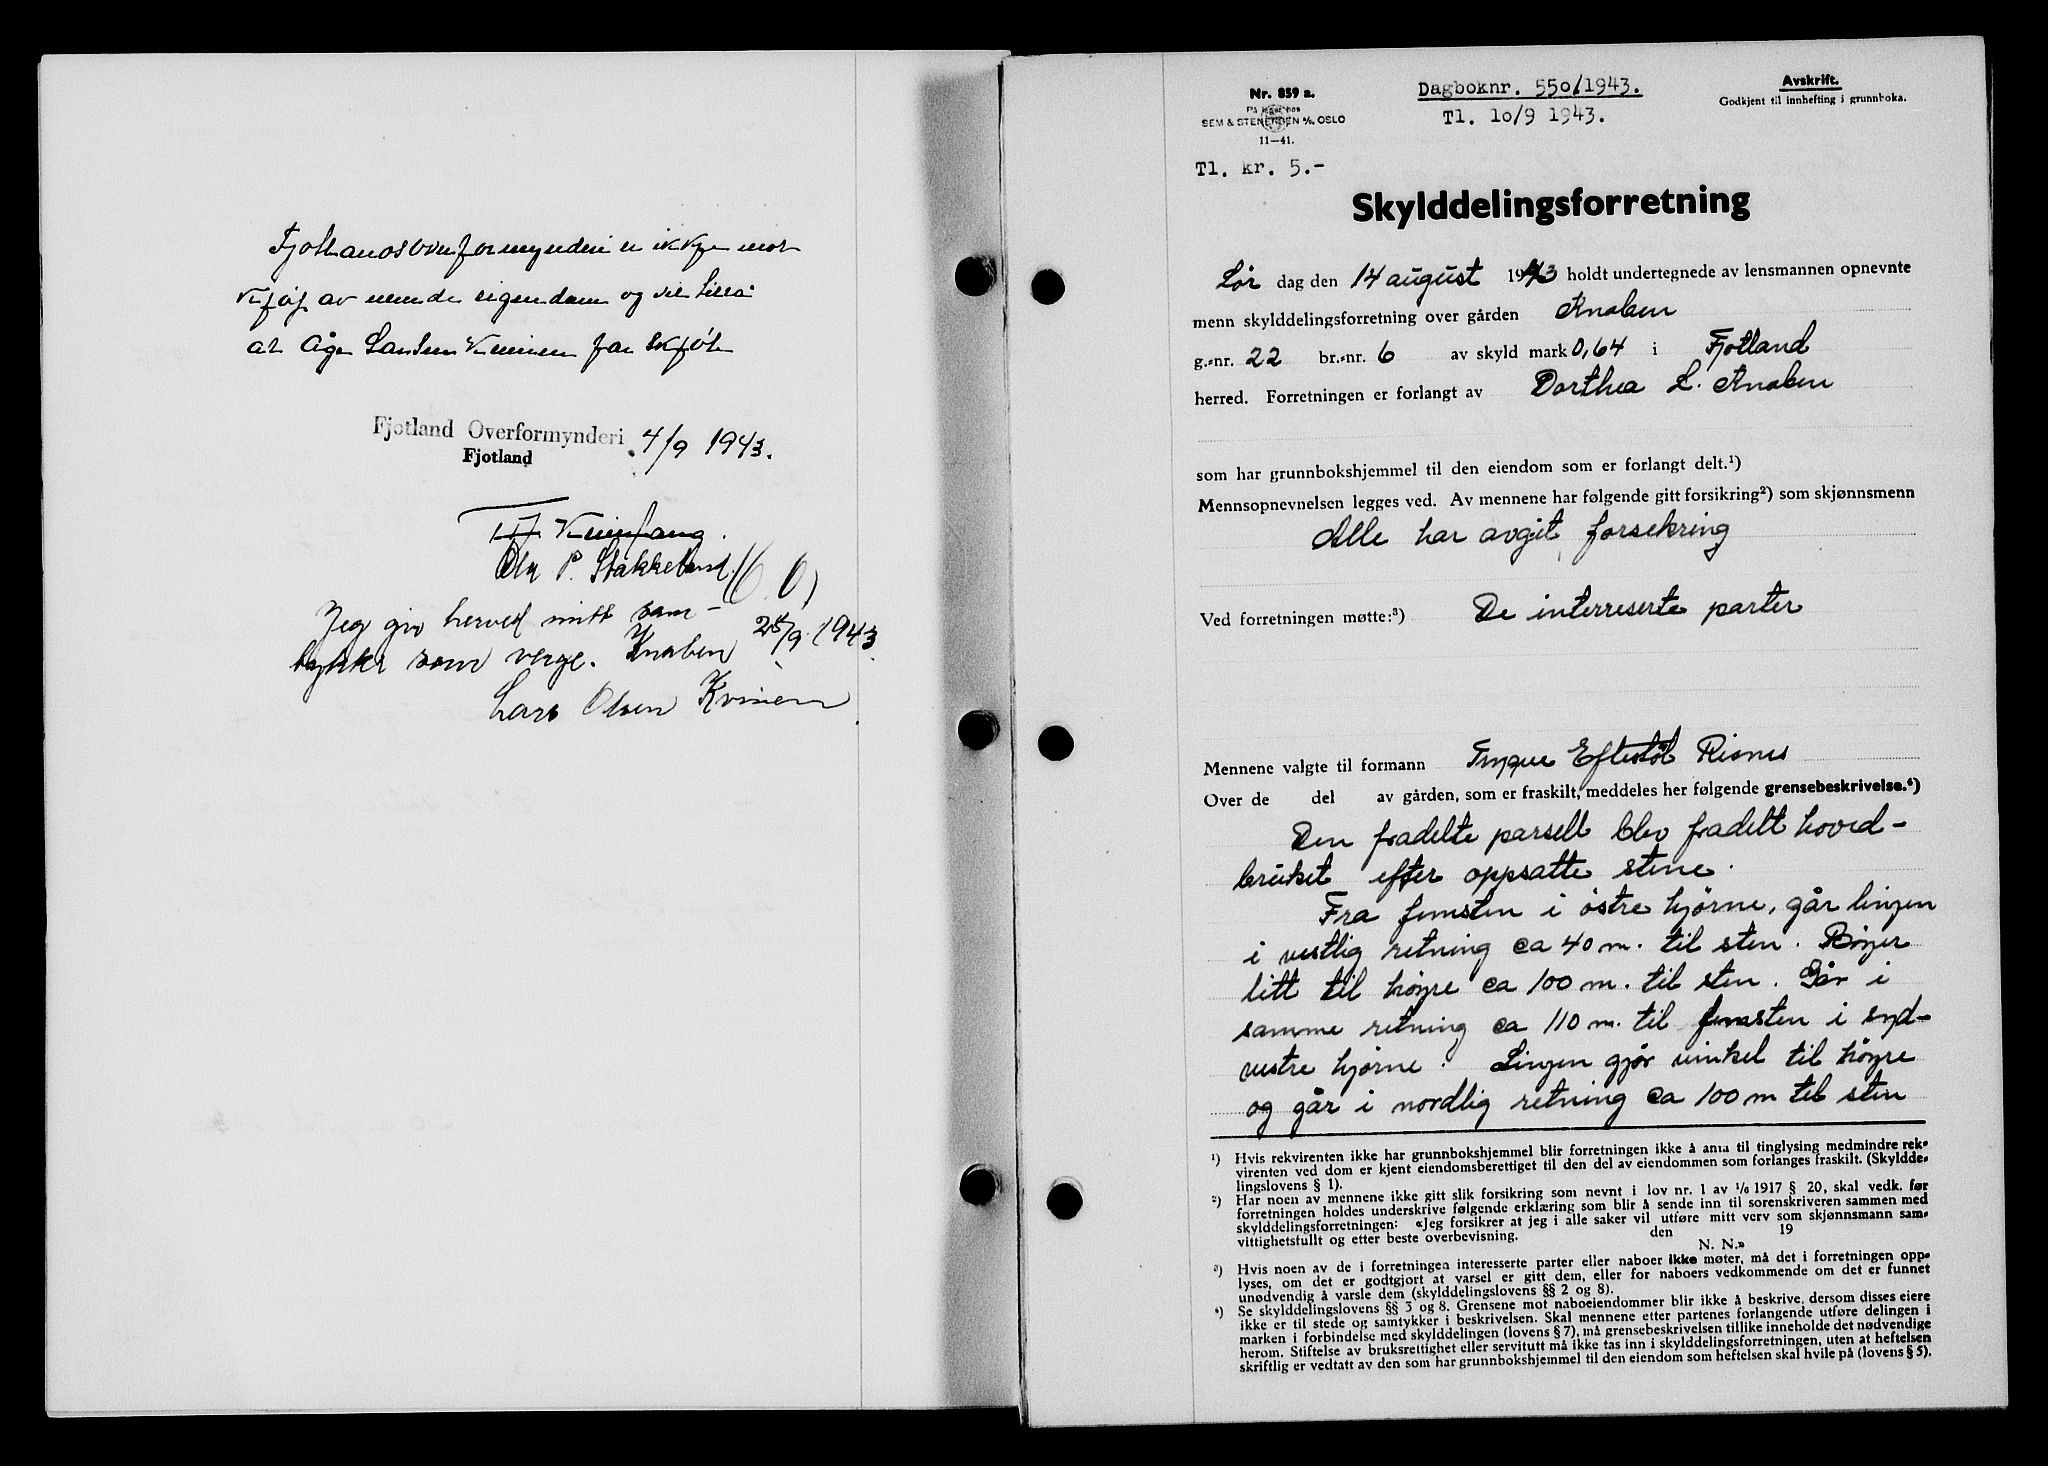 Fjotlands overformynderi er ikkje mot
kjøp av nemde eigendom og vil tilrå
at Åge Larsen Kvinen får skjøte
Fjotland Overformynderi 4/9 1943.
Fjotland
Ola P. Stakkeland
Jeg giv herved mitt sam-
tykke som verge. Knaben 28/9 1943
Lars Olsen Kvinen
Nr. 859 a.
På lager hos
SEM & STENERSEN A/S, OSLO
11—41.
Dagboknr. 550/1943.
Tl. 10/9 1943.
Avskrift.
Godkjent til innhefting i grunnboka.
Tl. kr. 5.-
Skylddelingsforretning
Lør dag den 14 august 1943 holdt undertegnede av lensmannen opnevnte
menn skylddelingsforretning over gården Knaben
g.-nr. 22 br.-nr. 6 av skyld mark 0,64 i Fjotland
herred. Forretningen er forlangt av Dorthea L. Knaben
som har grunnbokshjemmel til den eiendom som er forlangt delt.¹)
Mennsopnevnelsen legges ved. Av mennene har følgende gitt forsikring²) som skjønnsmenn
Alle har avgit forsekring
Ved forretningen møtte:³) De interreserte parter
Mennene valgte til formann Yngve Eftestøl Risnes
Over de del av gården, som er fraskilt, meddeles her følgende grensebeskrivelse.⁴)
Den fradelte parsell blev fradelt hoved-
bruket efter oppsatte stene.
Fra femsten i østre hjørne, går linjen
i vestlig retning ca 40 m. til sten. Bøyer
litt til høyre ca 100 m. til sten. Går i
samme retning ca 110 m. til femsten i syd-
vestre hjørne. Linjen gjør vinkel til høyre
og går i nordlig retning ca 100 m til sten
¹) Hvis rekvirenten ikke har grunnbokshjemmel blir forretningen ikke å anta til tinglysing medmindre rek-
virenten ved dom er kjent eiendomsberettiget til den del av eiendommen som forlanges fraskilt. (Skyldde-
lingslovens § 1).
²) Har noen av mennene ikke gitt slik forsikring som nevnt i lov nr. 1 av 1/6 1917 § 20, skal vedk. før
forretningen holdes underskrive følgende erklæring som blir å sende inn til sorenskriveren sammen med
skylddelingsforretningen: «Jeg forsikrer at jeg i alle saker vil utføre mitt verv som skjønnsmann sam-
vittighetsfullt og etter beste overbevisning. den 19
N. N.»
³) Hvis noen av de i forretningen interesserte parter eller naboer ikke møter, må det i forretningen opp-
lyses, om det er godtgjort at varsel er gitt dem, eller for naboers vedkommende om det er funnet
unødvendig å varsle dem (skylddelingslovens §§ 2 og 8).
⁴) Se skylddelingslovens §§ 3 og 8. Grensene mot naboeiendommer blir ikke å beskrive, dersom disses eiere
ikke er til stede og samtykker i beskrivelsen. Skal mennene etter partenes forlangende utføre delingen i
marken i forbindelse med skylddelingen (lovens § 7), må grensebeskrivelsen tillike inneholde det nødvendige
herom. Stiftelse av bruksrettighet eller servitutt må ikke tas inn i skylddelingsforretningen, uten at heftelsen
skriftlig er vedtatt av den som har grunnbokshjemmel til den eiendom som heftelsen skal hvile på (lovens § 5).